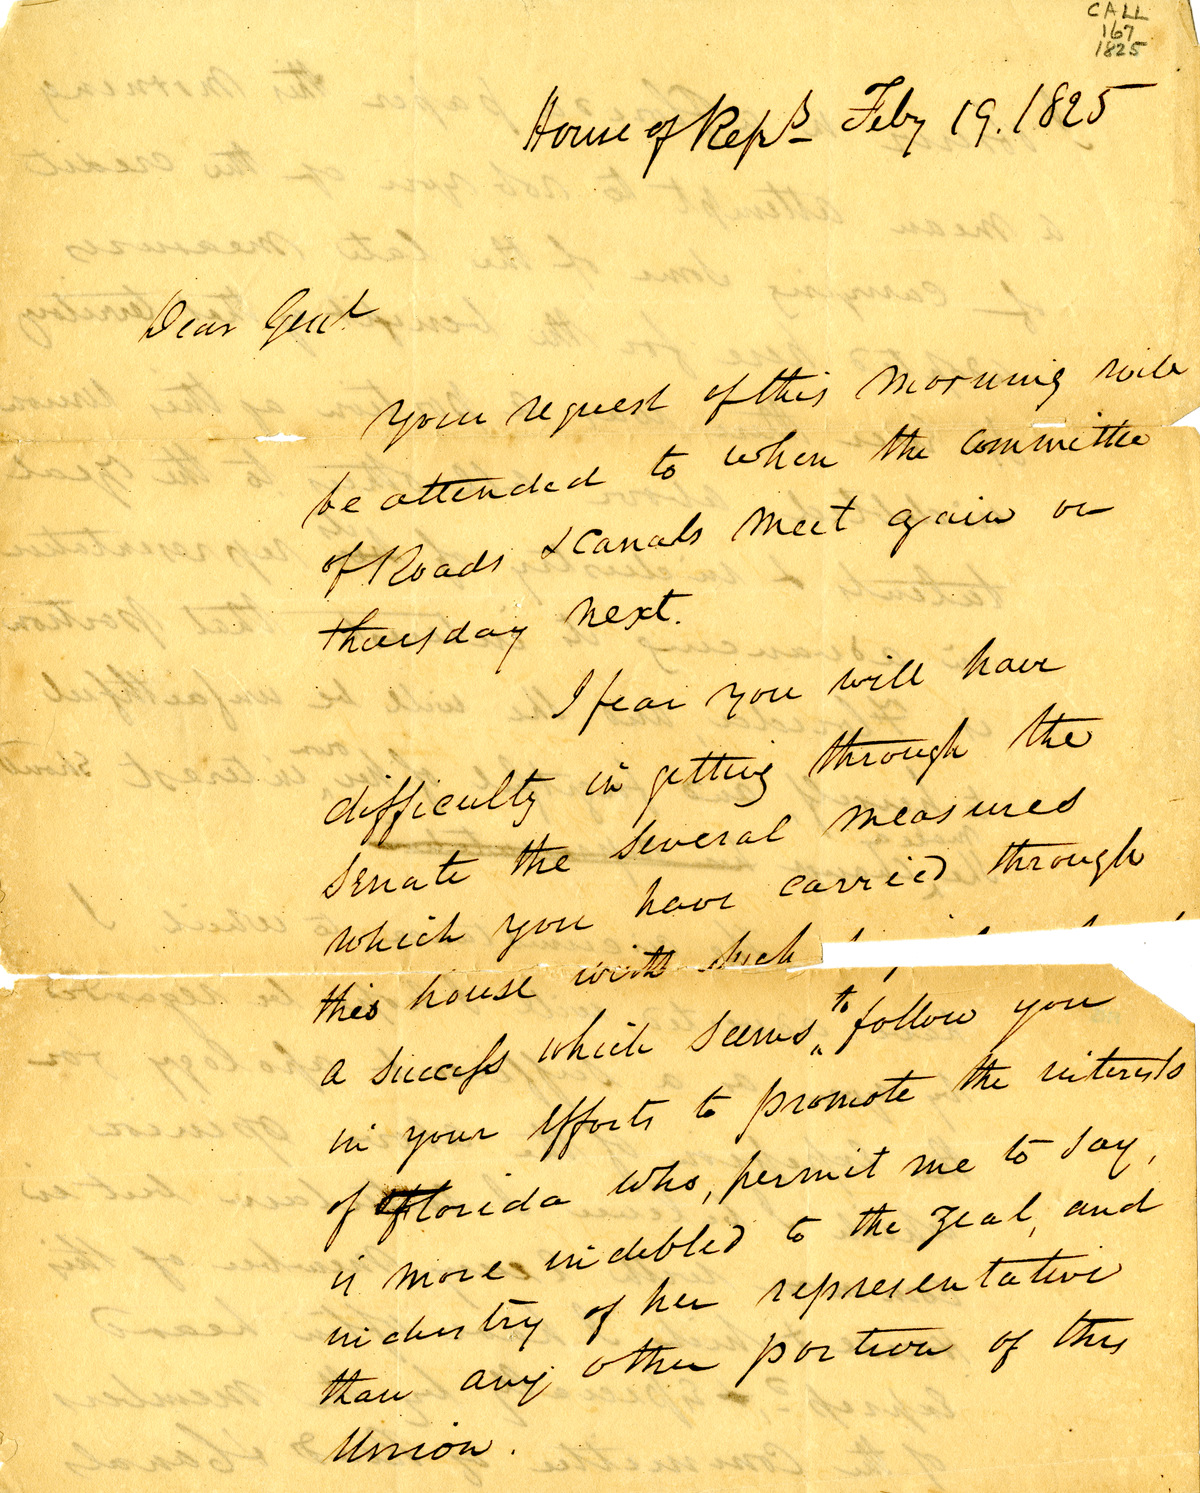 CALL
167
1825
House of Reps Feby 19. 1825
Dear Genl
Your request of this morning will
be attended to when the committee
of Roads & Canals meet again on
thursday next.
I fear you will have
difficulty in getting through the
Senate the several measures
which you have carried through
this house with such
a success which seems to follow you
in your efforts to promote the interests
of Florida who, permit me to say,
is more indebted to the zeal, and
industry of her representative
than any other portion of this
Union.